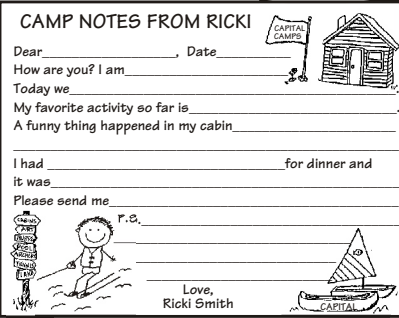 CAMP NOTES FROM RICKI
CAPITAL
CAMPS
Dear____________________, Date____________
How are you? I am________________________
Today we________________________________________________.
My favorite activity so far is______________________________.
A funny thing happened in my cabin________________________
________________________________________________________
I had __________________________________for dinner and
it was__________________________________________________
Please send me__________________________________________
P.S.____________________________________
Love,
Ricki Smith
CABINS
ART
POOL
ARCHERY
TENNIS
CAPITAL